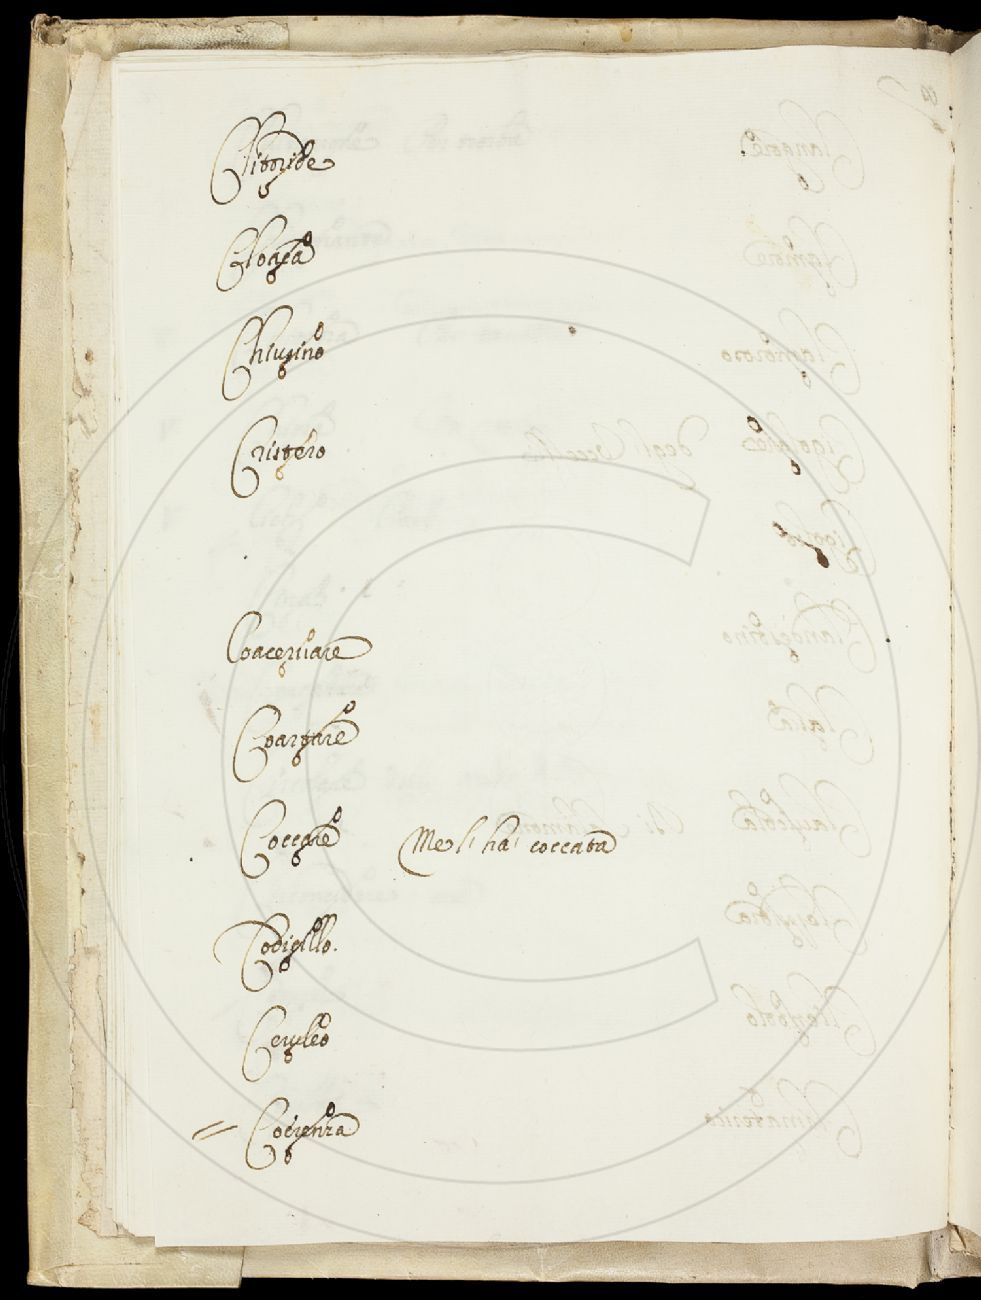 Clitoride
Cloaca
Chiusino
Cristero
Coacervare
Coartare
Coccare Me l'hai coccata
Codicillo.
Ceruleo
= Cocienza